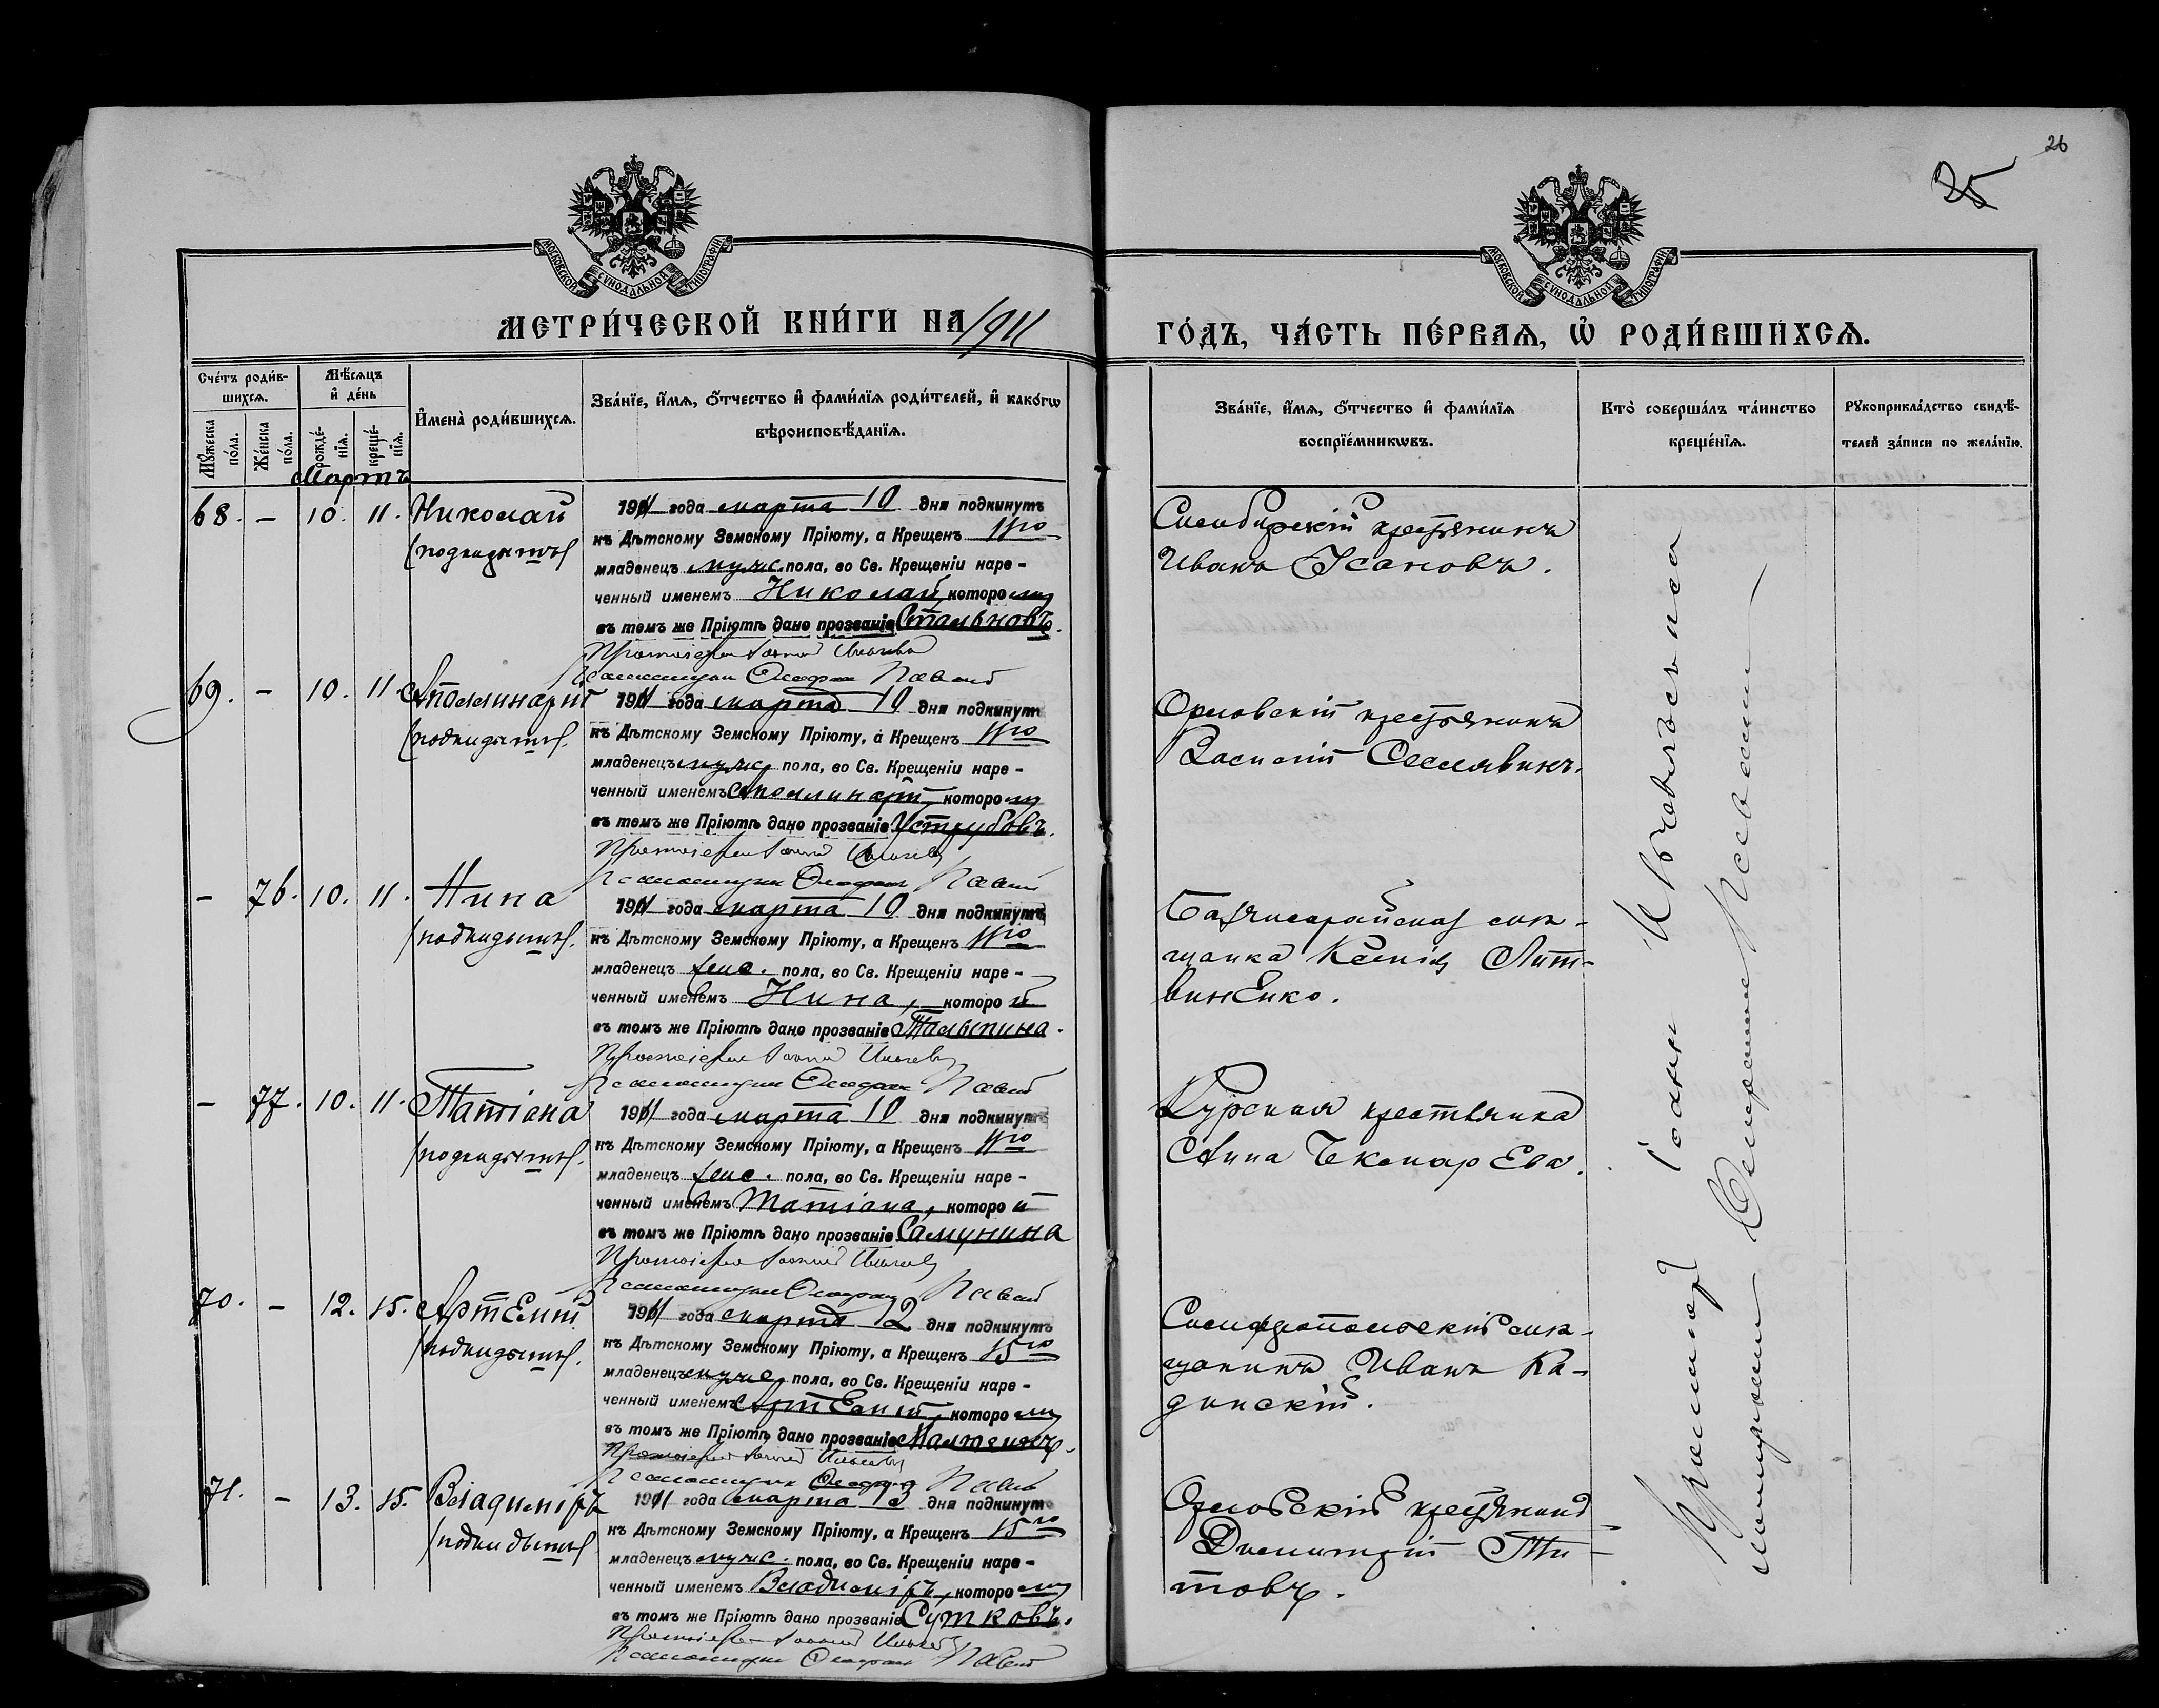 26
35
МОСКОВСКОЙ СѴНОДАЛЬНОЙ ТИПОГРАФІИ
МОСКОВСКОЙ СѴНОДАЛЬНОЙ ТИПОГРАФІИ
МЕТРИ́ЧЕСКОЙ КНИ́ГИ НА 1911
ГО́ДЪ, ЧА́СТЬ ПЕ́РВАѦ, Ѽ РОДИ́ВШИХСѦ.
Сче́тъ роди́в-
шихсѧ.
Мѣ́сѧцъ
и҆ де́нь
И҆мена̀ роди́вшихсѧ.
Зва́нїе, и҆́мѧ, ѻ҆́тчество и҆ фами́лїѧ роди́телей, и҆ како́гѡ
вѣроисповѣ́данїѧ.
Мꙋ́жеска
по́ла.
Же́нска
по́ла.
рожде́-
нїѧ.
креще́-
нїѧ.
Зва́нїе, и҆́мѧ, ѻ҆́тчество и҆ фами́лїѧ
воспрїе́мникѡвъ.
Кто̀ соверша́лъ та́инство
креще́нїѧ.
Рꙋкоприкла́дство свидѣ́-
телей за́писи по жела́нїю.
Мартъ
68. – 10. 11. Николай
(подкидышъ)
1911 года марта 10 дня подкинутъ
къ Дѣтскому Земскому Пріюту, а Крещенъ 11го
младенецъ муж. пола, во Св. Крещеніи наре-
ченный именемъ Николай, которому
въ томъ же Пріютѣ дано прозваніе Стальновъ.
Протоіерей Іоаннъ
Псаломщикъ
Симбирскій крестьянинъ
Иванъ Усановъ.
69. – 10. 11. Аполлинарій
(подкидышъ).
1911 года марта 10 дня подкинутъ
къ Дѣтскому Земскому Пріюту, а Крещенъ 11го
младенецъ муж. пола, во Св. Крещеніи наре-
ченный именемъ Аполлинарій, которому
въ томъ же Пріютѣ дано прозваніе Уструбовъ.
Протоіерей Іоаннъ
Псаломщикъ
Орловскій крестьянинъ
Василій Селявинъ.
– 76. 10. 11. Нина
(подкидышъ).
1911 года марта 10 дня подкинутъ
къ Дѣтскому Земскому Пріюту, а Крещенъ 11го
младенецъ жен. пола, во Св. Крещеніи наре-
ченный именемъ Нина, которой
въ томъ же Пріютѣ дано прозваніе Талыпина.
Протоіерей Іоаннъ
Псаломщикъ
Бахчисарайская мѣ-
щанка Ксенія Лит-
виненко.
– 77. 10. 11. Татіана
(подкидышъ).
1911 года марта 10 дня подкинутъ
къ Дѣтскому Земскому Пріюту, а Крещенъ 11го
младенецъ жен. пола, во Св. Крещеніи наре-
ченный именемъ Татіана, которой
въ томъ же Пріютѣ дано прозваніе Самунина
Протоіерей Іоаннъ
Псаломщикъ
Курская крестьянка
Анна Чекмарева.
70. – 12. 15. Артемій
(подкидышъ).
1911 года марта 12 дня подкинутъ
къ Дѣтскому Земскому Пріюту, а Крещенъ 15го
младенецъ муж. пола, во Св. Крещеніи наре-
ченный именемъ Артемій, которому
въ томъ же Пріютѣ дано прозваніе
Протоіерей Іоаннъ
Псаломщикъ
Симферопольскій мѣ-
щанинъ Иванъ Ка-
динскій.
71. – 13. 15. Владиміръ
(подкидышъ)
1911 года марта 13 дня подкинутъ
къ Дѣтскому Земскому Пріюту, а Крещенъ 15го
младенецъ муж. пола, во Св. Крещеніи наре-
ченный именемъ Владиміръ, которому
въ томъ же Пріютѣ дано прозваніе Сутковъ.
Протоіерей Іоаннъ
Псаломщикъ
Орловскій крестьянинъ
Димитрій Ти-
товъ.
Протоіерей Іоаннъ